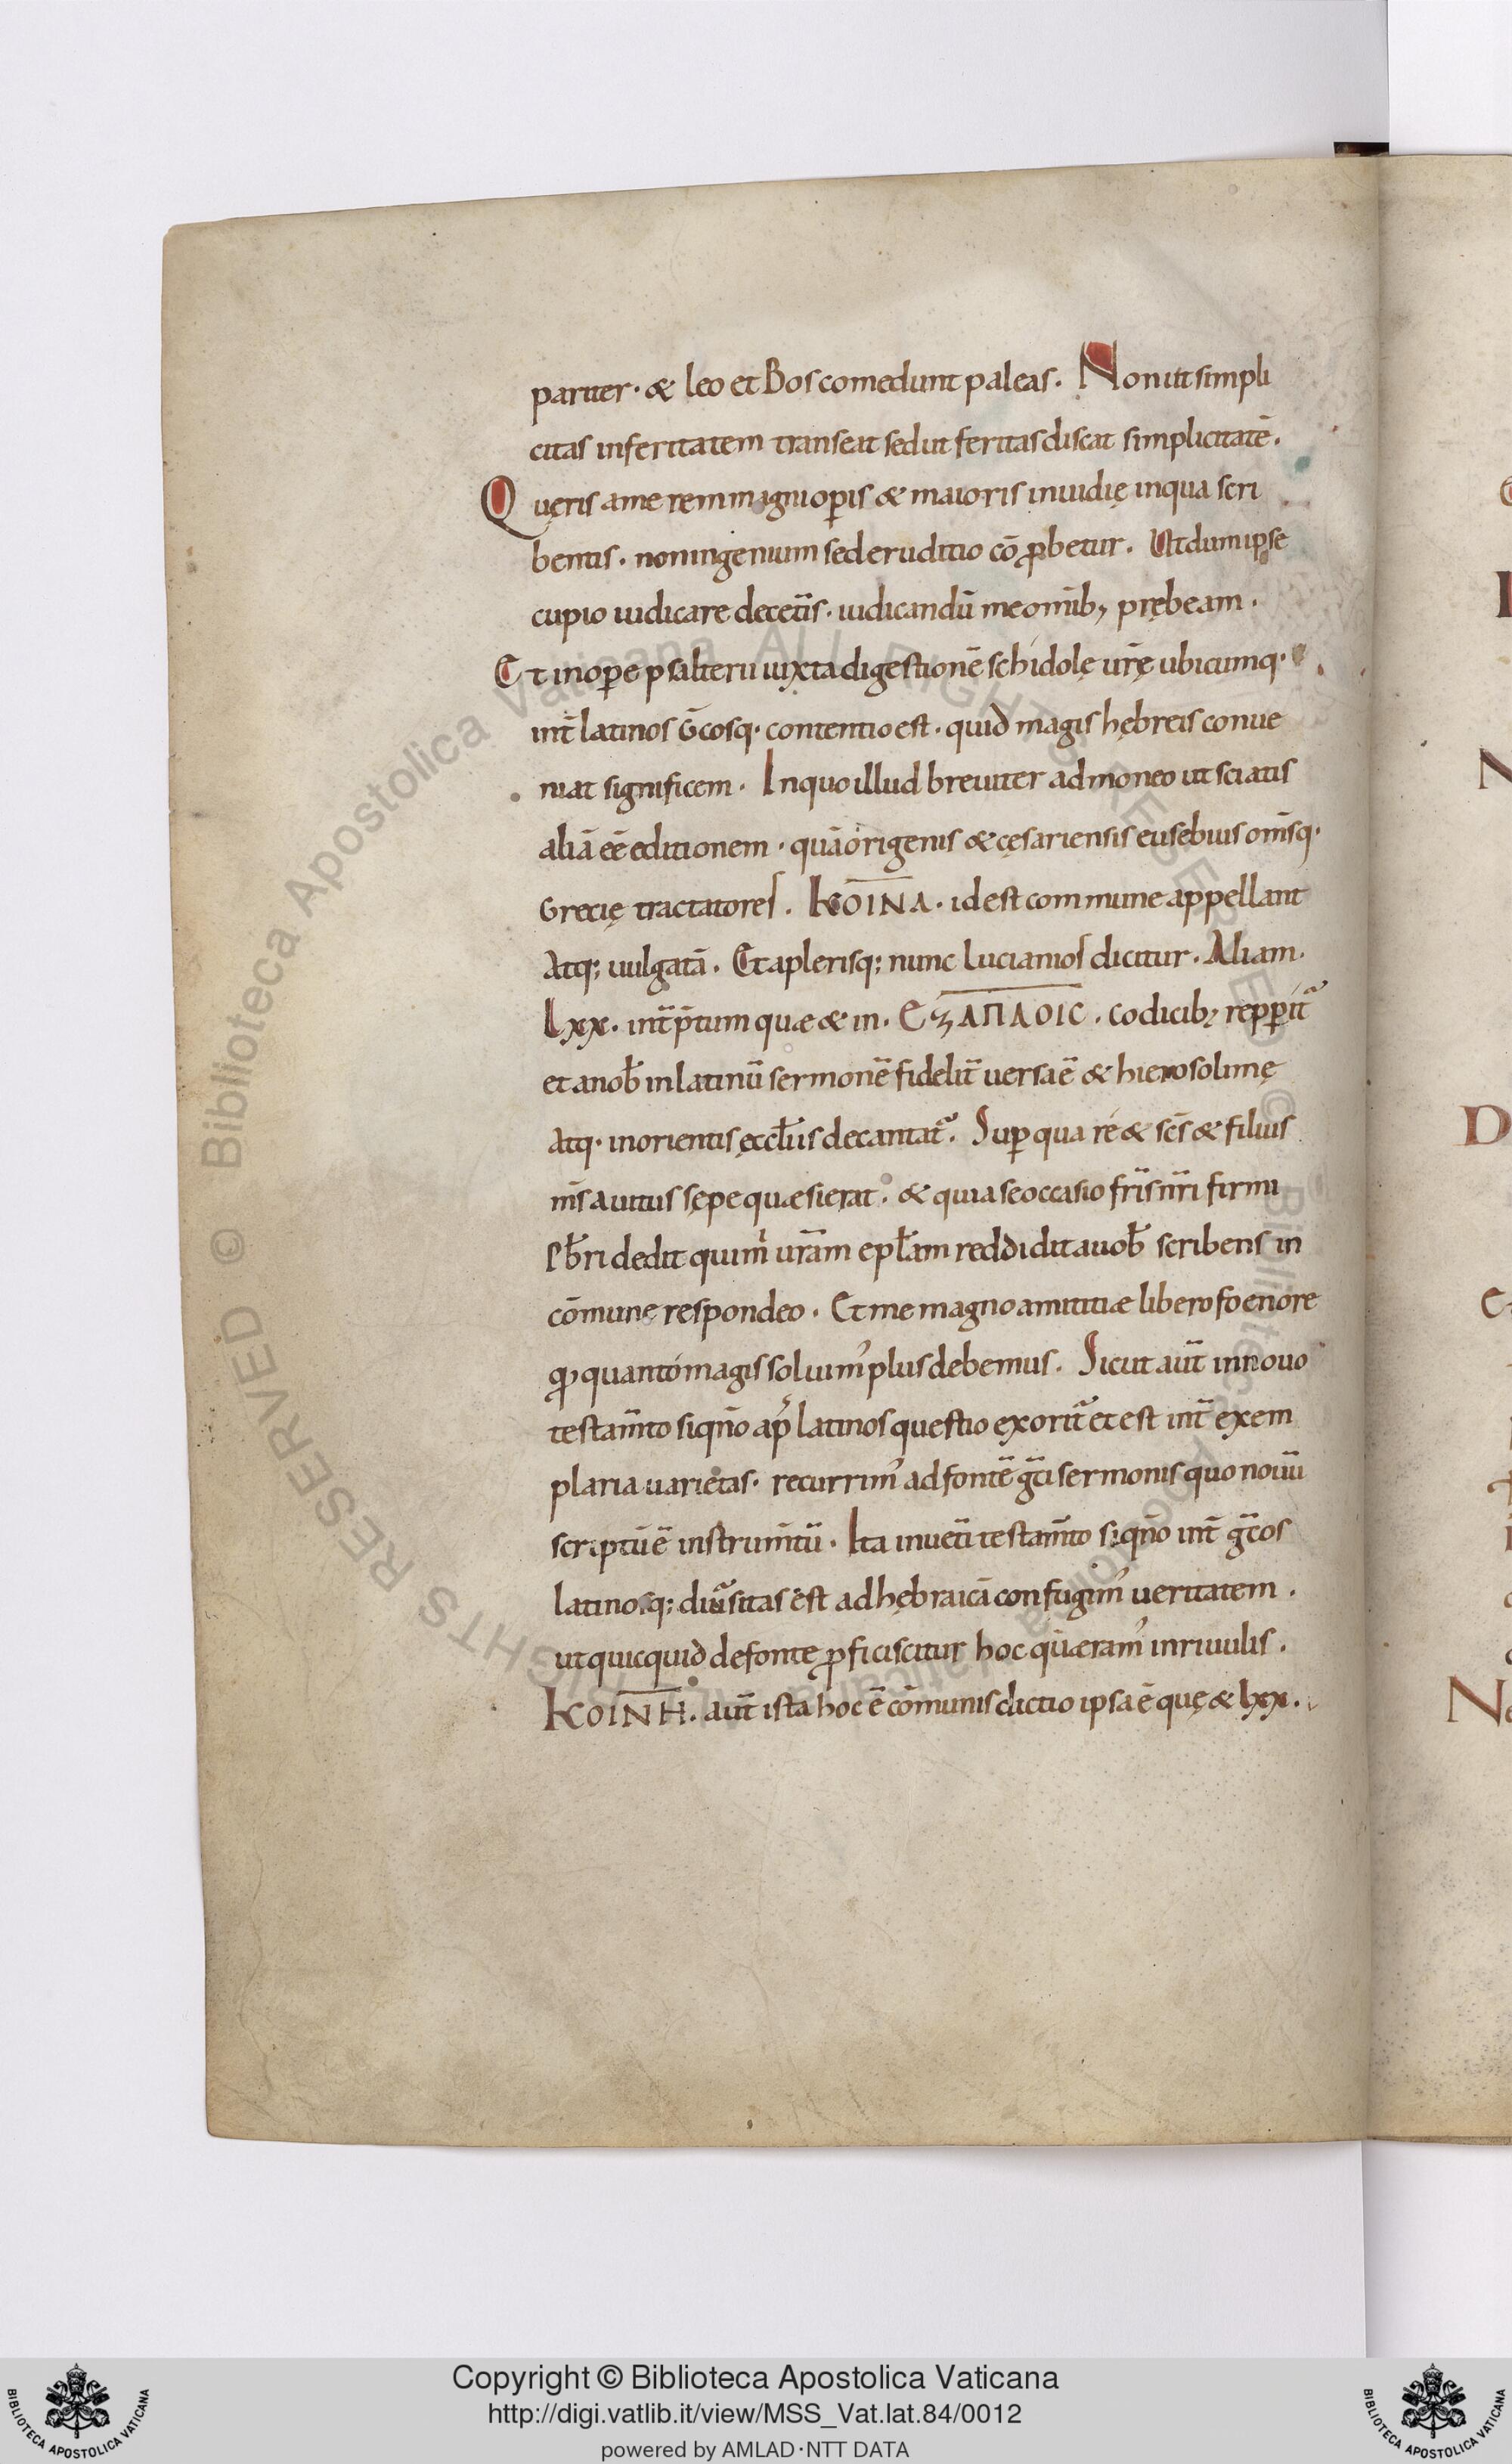 pariter · & leo et Bos comedunt paleas . Non ut simpli
citas in feritatem transeat sed ut feritas discat simplicitatē .
Queris a me rem magni opis & maioris inuidię in qua scri
bentis . non ingenium sed eruditio cō ꝓbetur . Ut dum ipse
cupio iudicare de cet̄is . iudicandū me omīb, prębeam .
Et in ope psalterii iuxta digestionē schidolę ur̄ę ubicumq·
int̄ latinos Gc̄osq· contentio est . quid magis hębreis conue
niat significem . In quo illud breuiter admoneo ut sciatis
aliā eē editionem . quā origenis & cęsariensis eusebius om̄sq·
Grecię tractatores . KOINA . id est commune appellant
Atq; uulgatā . Et a plerisq; nunc lucianios dicitur . Aliam .
Lxx . int̄p̄tum quæ & in . ΕξΑΠΛΟΙC . codicib; repperit̄
et a nob̄ in latinū sermonē fidelit̄ uersa ē & hierosolimę
Atq· in orientis ęccl̄iis decantat̄ . Sup qua re & sc̄s & filius
m̄s auitus sępe quæsierat . & quia se occasio fr̄is nr̄i firmi
Pb̄ri dedit qui m̄ ur̄am epl̄am reddidit a uob̄ scribens in
cōmune respondeo . Et me magno amititiæ libero foenore
q̨ quanto magis soluim' plus debemus . Sicut aut̄ in nouo
testam̄to siqn̄o ap̄ latinos questio exorit̄ et est int̄ exem
plaria uarietas . recurrim' ad fontē gc̄i sermonis quo nouū
scriptū ē instrum̄tū . Ita in uet̄i testam̄to siqn̄o int̄ gc̄os
latinosq; diūsitas est ad hębraicā confugim' ueritatem .
ut quicquid de fonte ꝓficiscitur hoc quæram' in riuulis .
KOINH . aut̄ ista hoc ē cōmunis dictio ipsa ē quę & lxx .
Copyright © Biblioteca Apostolica Vaticana
http://digi.vatlib.it/view/MSS_Vat.lat.84/0012
powered by AMLAD·NTT DATA
BIBLIOTECA APOSTOLICA VATICANA
BIBLIOTECA APOSTOLICA VATICANA